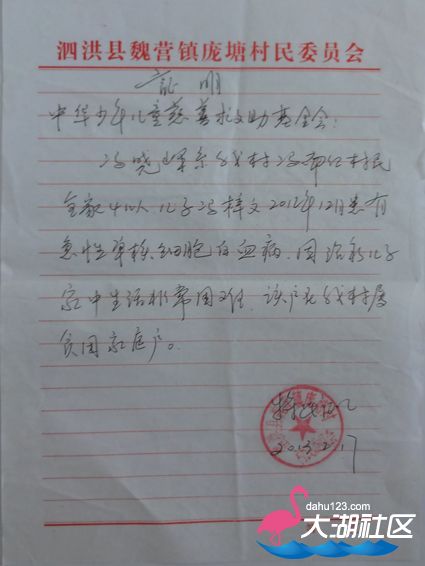 泗洪县魏营镇庞塘村民委员会
证明
中华少年儿童慈善救助基金会:
冯晓峰系我村冯 村民
全家4口人 儿子冯梓文2012年12月患有
急性单核细胞白血病.因给 儿子
家中生活非常困难.该户在我村属
贫困家庭户。
2013.2.17
dahu123.com
大湖社区